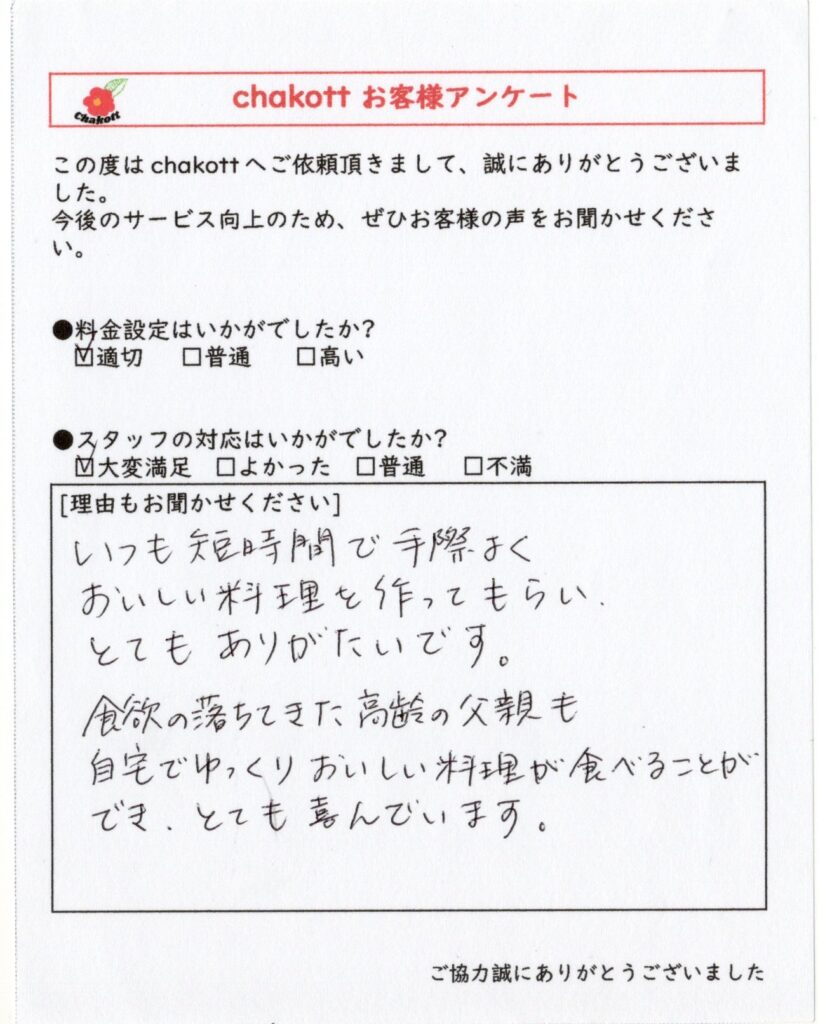 Chakott
chakott お客様アンケート
この度は chakott へご依頼頂きまして、誠にありがとうございま
した。
今後のサービス向上のため、ぜひお客様の声をお聞かせくださ
い。
●料金設定はいかがでしたか?
☑適切 □普通 □高い
●スタッフの対応はいかがでしたか?
☑大変満足 □よかった □普通 □不満
[理由もお聞かせください]
いつも短時間で手際よく
おいしい料理を作ってもらい、
とてもありがたいです。
食欲の落ちてきた高齢の父親も
自宅でゆっくりおいしい料理が食べることが
でき、とても喜んでいます。
ご協力誠にありがとうございました